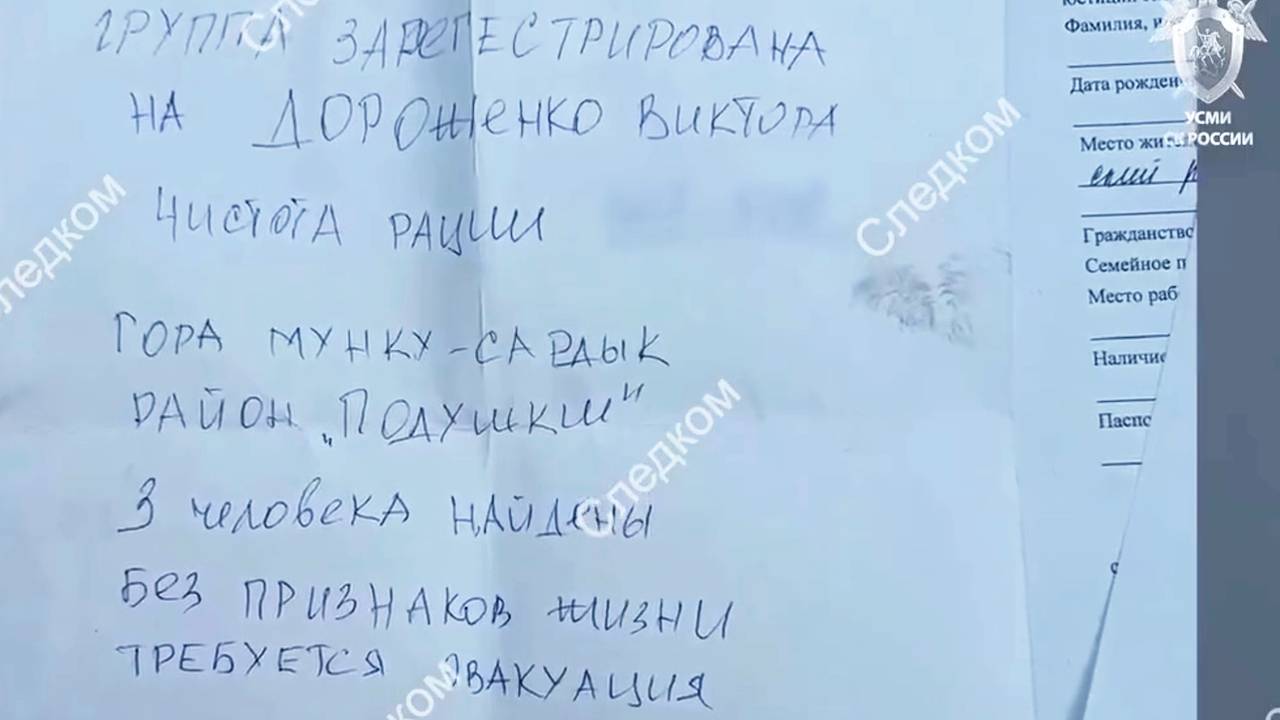 ГРУППА ЗАРЕГЕСТРИРОВАНА
НА ДОРОЖЕНКО ВИКТОРА
ЧИСТОТА РАЦИИ
ГОРА МУНКУ-САРДЫК
РАЙОН „ПОДУШКИ"
3 человека НАЙДЕНЫ
БЕЗ ПРИЗНАКОВ ЖИЗНИ
ТРЕБУЕТСЯ ЭВАКУАЦИЯ
Фамилия, и
Дата рожден
Место жит
ский р
Гражданство
Семейное п
Место раб
Наличие
Паспо
УСМИ
СК РОССИИ
Следком
Следком
Следком
Следком
Следком